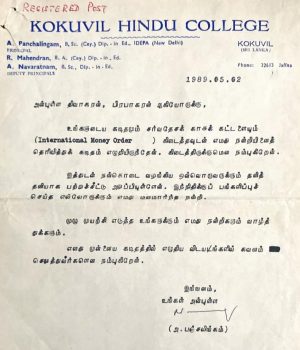 REGISTERED POST
KOKUVIL HINDU COLLEGE
A. Panchalingam, B.Sc. (Cey.) Dip - in Ed., IDEPA (New Delhi)
PRINCIPAL
R. Mahendran, B.A. (Cey.) Dip - in Ed.
A. Navaratnam, B.Sc., Dip - in Ed.,
DEPUTY PRINCIPALS
KOKUVIL
(SRI LANKA)
Phone: Jaffna
1989.05.02
அன்புள்ள தியாகரன், பிரபாகரன் ஆகியோருக்கு,
உங்களுடைய கடிதமும் சர்வதேசக் காசுக் கட்டளையும்
(International Money Order ) கிடைத்தவுடன் எமது நன்றியினைத்
தெரிவித்துக் கடிதம் எழுதியிருந்தேன். கிடைத்திருக்குமென நம்புகிறேன்.
இத்துடன் நன்கொடை வழங்கிய ஒவ்வொருவருக்கும் தனித்
தனியாக பற்றுச்சீட்டு அனுப்பியுள்ளேன். இந்நிதிக்குப் பங்களிப்புச்
செய்த எல்லோருக்கும் எமது மனமார்ந்த நன்றி.
முழு முயற்சி எடுத்த உங்களுக்கும் எமது நன்றிகளும் வாழ்த்
துக்களும்.
எனது முன்னைய கடிதத்தில் எழுதிய விடயங்களில் கவனம்
செலுத்துவீர்களென நம்புகிறேன்.
இங்ஙனம்,
உங்கள் அன்புள்ள
(அ. பஞ்சலிங்கம்)